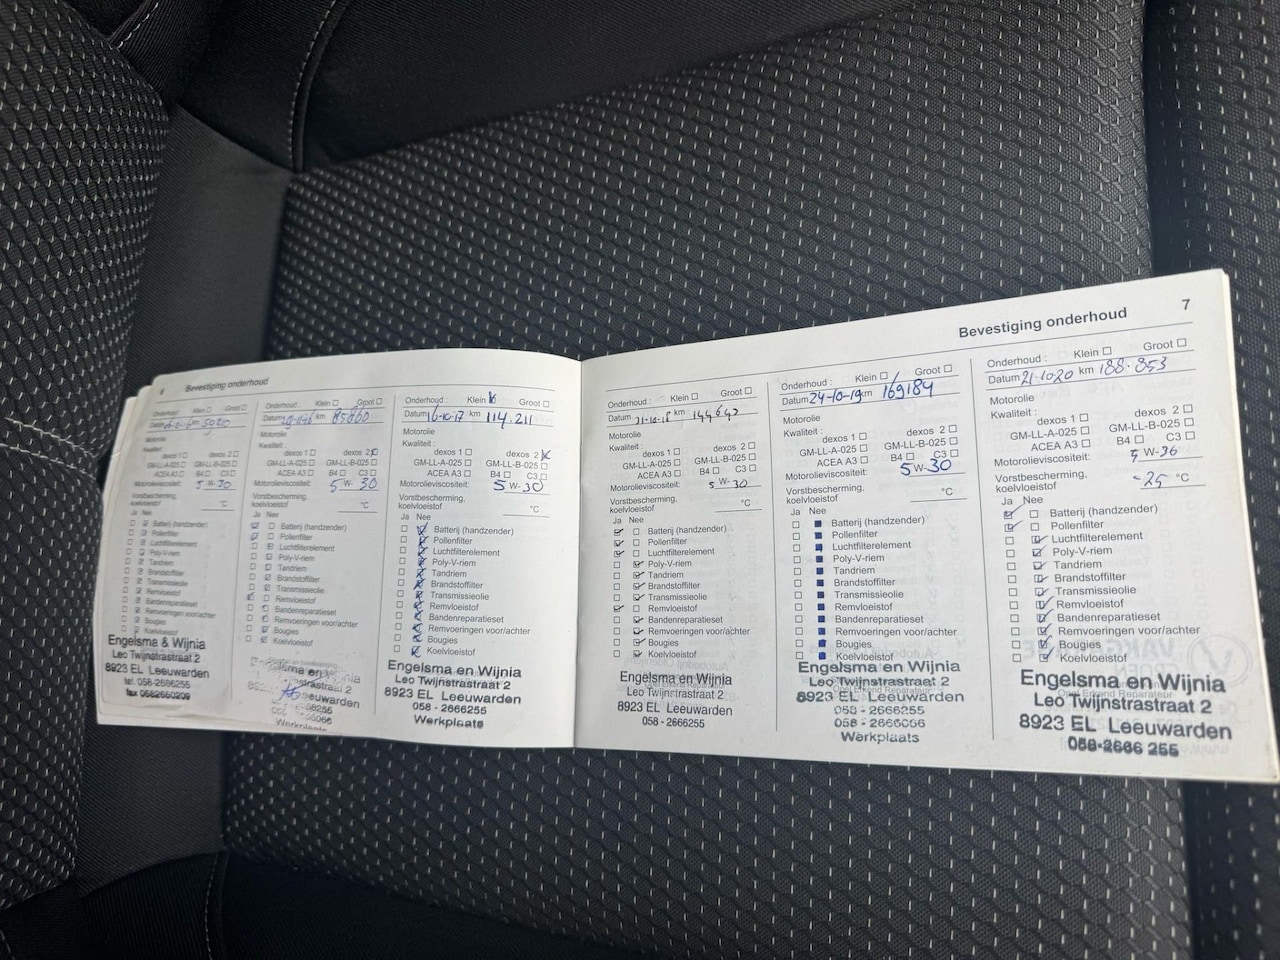 6 Bevestiging onderhoud
Onderhoud : Klein ☐ Groot ☐
Datum km
Motorolie
Kwaliteit :
dexos 1 ☐ dexos 2 ☐
GM-LL-A-025 ☐ GM-LL-B-025 ☐
ACEA A3 ☐ B4 ☐ C3 ☐
Motorolieviscositeit: 5 W- 30
Vorstbescherming,
koelvloeistof °C
Ja Nee
Batterij (handzender)
Pollenfilter
Luchtfilterelement
Poly-V-riem
Tandriem
Brandstoffilter
Transmissieolie
Remvloeistof
Bandenreparatieset
Remvoeringen voor/achter
Bougies
Koelvloeistof
Engelsma & Wijnia
Leo Twijnstrastraat 2
8923 EL Leeuwarden
tel. 058-2666255
Onderhoud : Klein ☐ Groot ☐
Datum km 85660
Motorolie
Kwaliteit :
dexos 1 ☐ dexos 2 ☒
GM-LL-A-025 ☐ GM-LL-B-025 ☐
ACEA A3 ☐ B4 ☐ C3 ☐
Motorolieviscositeit: 5 W- 30
Vorstbescherming,
koelvloeistof °C
Ja Nee
Batterij (handzender)
Pollenfilter
Luchtfilterelement
Poly-V-riem
Tandriem
Brandstoffilter
Transmissieolie
Remvloeistof
Bandenreparatieset
Remvoeringen voor/achter
Bougies
Koelvloeistof
Werkplaats
Onderhoud : Klein ☒ Groot ☐
Datum 16-10-17 km 114.211
Motorolie
Kwaliteit :
dexos 1 ☐ dexos 2 ☒
GM-LL-A-025 ☐ GM-LL-B-025 ☐
ACEA A3 ☐ B4 ☐ C3 ☐
Motorolieviscositeit: 5 W- 30
Vorstbescherming,
koelvloeistof °C
Ja Nee
Batterij (handzender)
Pollenfilter
Luchtfilterelement
Poly-V-riem
Tandriem
Brandstoffilter
Transmissieolie
Remvloeistof
Bandenreparatieset
Remvoeringen voor/achter
Bougies
Koelvloeistof
Engelsma en Wijnia
Leo Twijnstrastraat 2
8923 EL Leeuwarden
058 - 2666255
Werkplaats
Bevestiging onderhoud 7
Onderhoud : Klein ☐ Groot ☐
Datum km 144642
Motorolie
Kwaliteit :
dexos 1 ☐ dexos 2 ☐
GM-LL-A-025 ☐ GM-LL-B-025 ☐
ACEA A3 ☐ B4 ☐ C3 ☐
Motorolieviscositeit: 5 W- 30
Vorstbescherming,
koelvloeistof °C
Ja Nee
Batterij (handzender)
Pollenfilter
Luchtfilterelement
Poly-V-riem
Tandriem
Brandstoffilter
Transmissieolie
Remvloeistof
Bandenreparatieset
Remvoeringen voor/achter
Bougies
Koelvloeistof
Engelsma en Wijnia
Leo Twijnstrastraat 2
8923 EL Leeuwarden
058 - 2666255
Onderhoud : Klein ☐ Groot ☐
Datum 24-10-19 km 169184
Motorolie
Kwaliteit :
dexos 1 ☐ dexos 2 ☐
GM-LL-A-025 ☐ GM-LL-B-025 ☐
ACEA A3 ☐ B4 ☐ C3 ☐
Motorolieviscositeit: 5 W- 30
Vorstbescherming,
koelvloeistof °C
Ja Nee
Batterij (handzender)
Pollenfilter
Luchtfilterelement
Poly-V-riem
Tandriem
Brandstoffilter
Transmissieolie
Remvloeistof
Bandenreparatieset
Remvoeringen voor/achter
Bougies
Koelvloeistof
Engelsma en Wijnia
Leo Twijnstrastraat 2
8923 EL Leeuwarden
058 - 2666255
Werkplaats
Onderhoud : Klein ☐ Groot ☐
Datum 21-10-20 km 188.853
Motorolie
Kwaliteit :
dexos 1 ☐ dexos 2 ☐
GM-LL-A-025 ☐ GM-LL-B-025 ☐
ACEA A3 ☐ B4 ☐ C3 ☐
Motorolieviscositeit: 5 W- 30
Vorstbescherming,
koelvloeistof -25 °C
Ja Nee
Batterij (handzender)
Pollenfilter
Luchtfilterelement
Poly-V-riem
Tandriem
Brandstoffilter
Transmissieolie
Remvloeistof
Bandenreparatieset
Remvoeringen voor/achter
Bougies
Koelvloeistof
Engelsma en Wijnia
Leo Twijnstrastraat 2
8923 EL Leeuwarden
058-2666 255